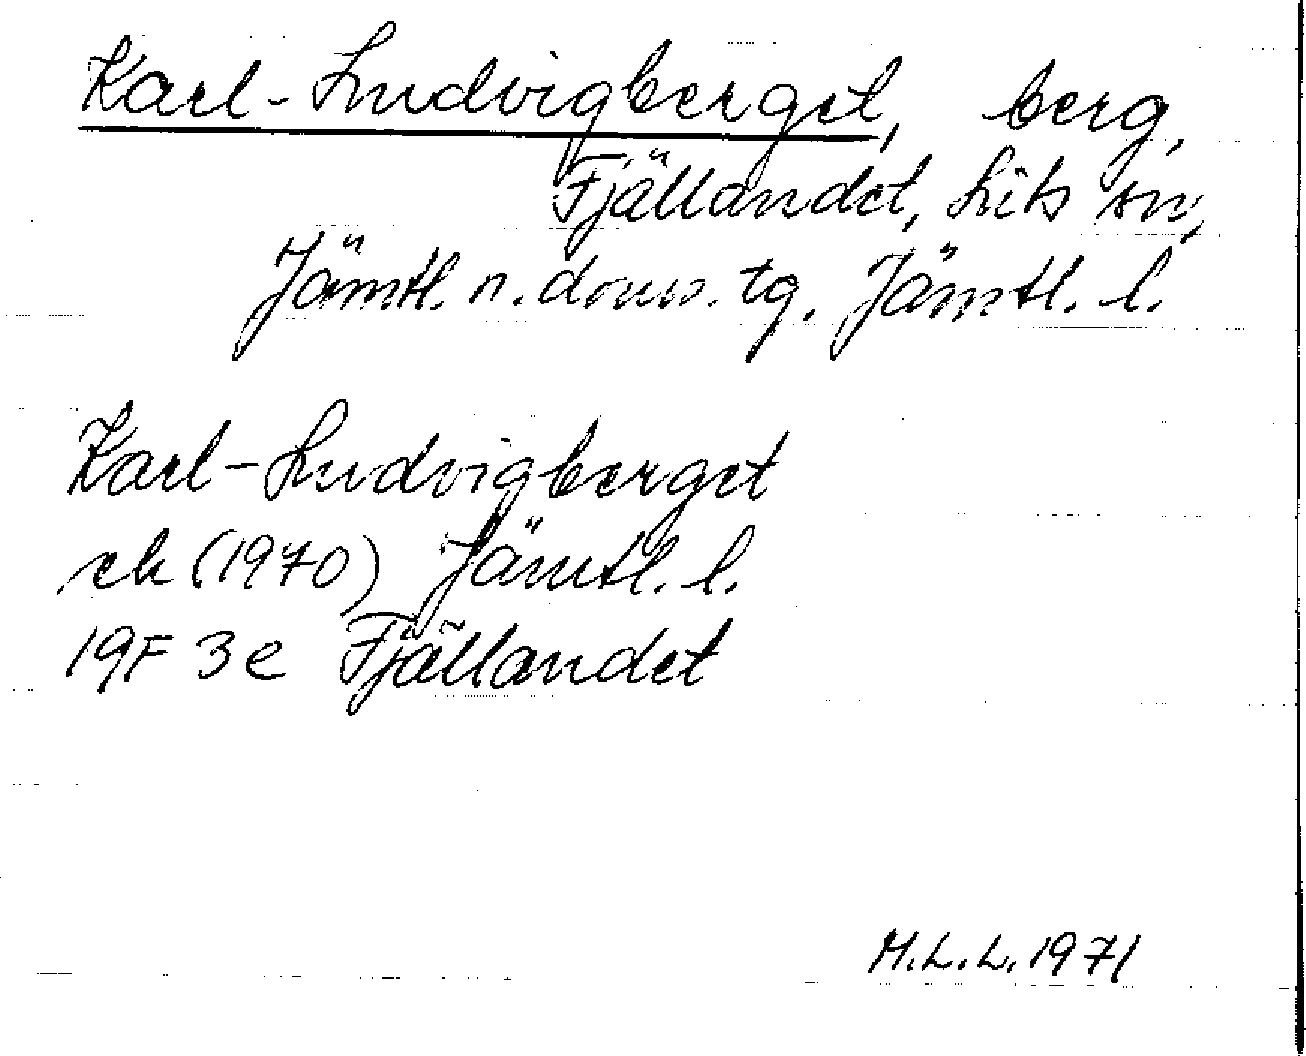 Karl-Ludvigberget, berg,
Fjällandet, Lits sn,
Jämtl. n. doms. tg. Jämtl. l.
Karl-Ludvigberget
ek (1970) Jämtl. l.
19F 3e Fjällandet
M.L.L. 1971